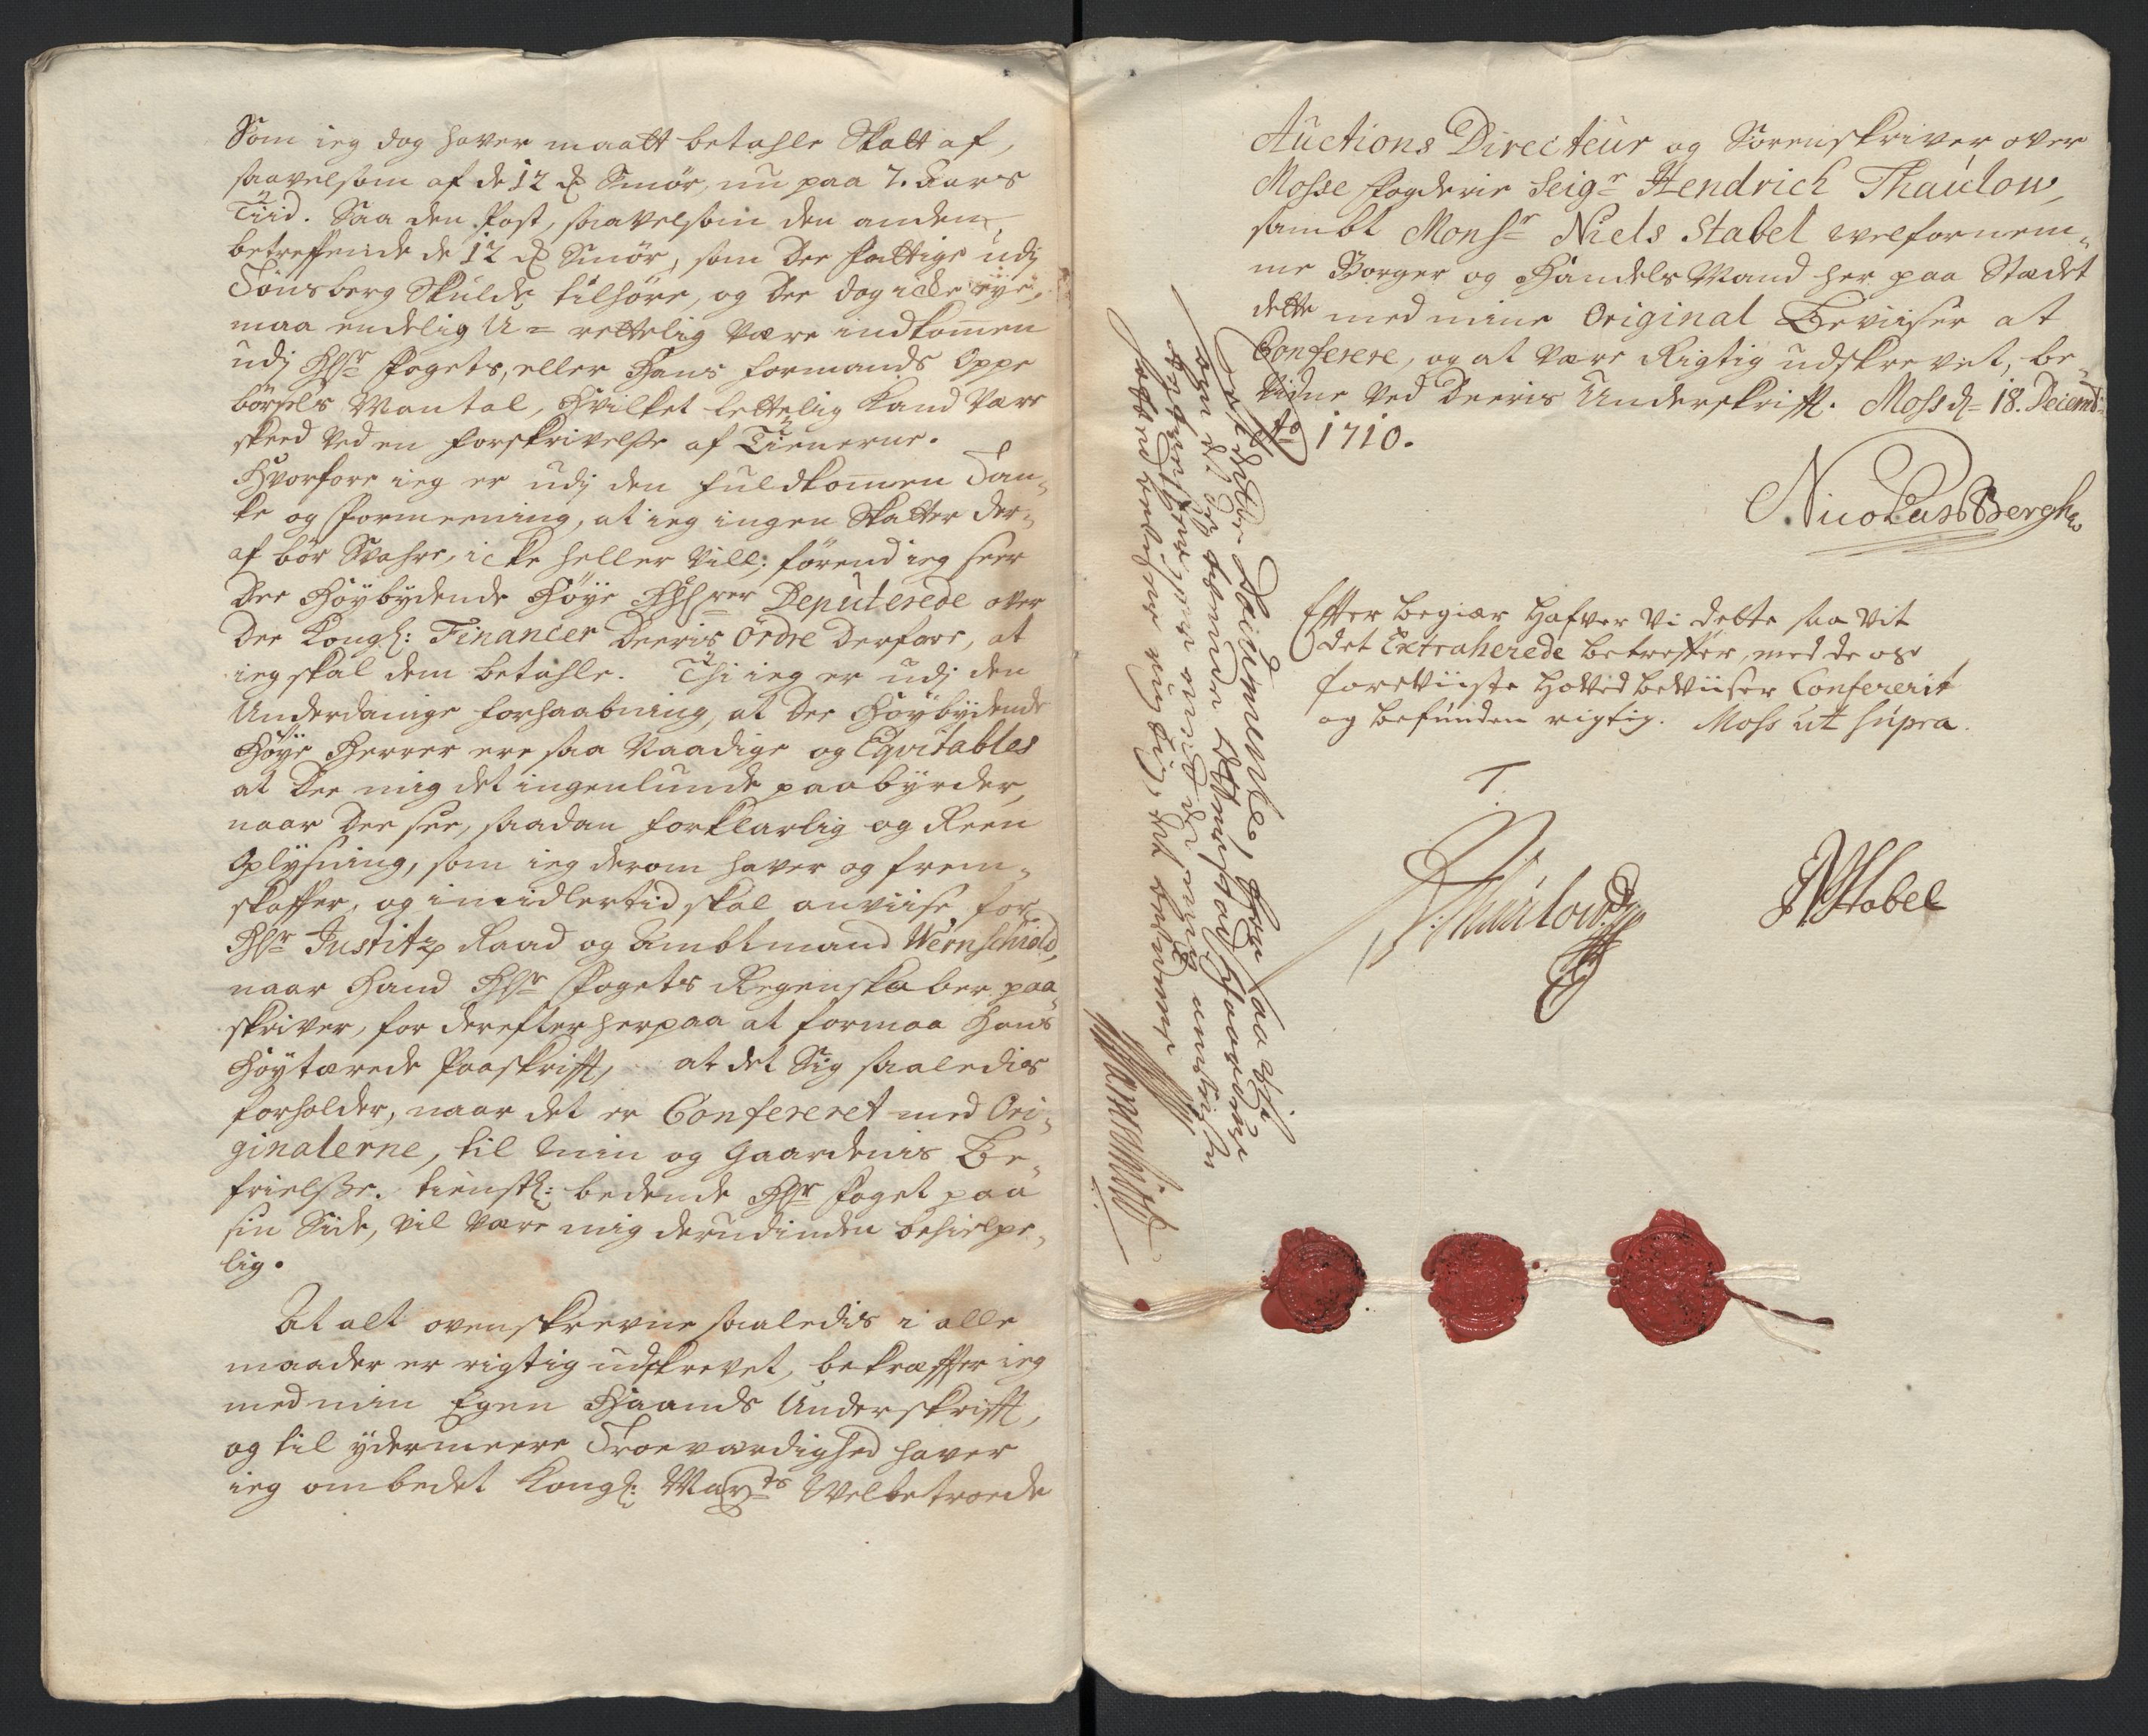 Som ieg dog haver maatt betahle Skatt af,
saavelsom af de 12 ℔ Smör, nu paa 7. Aars
Tiid. Saa den Post, saavelsom den anden
betreffende de 12 ℔ Smör, som Dee fattige udj
Tönsberg Skulde tilhöre, og Dee dog icke eÿe,
maa endelig U-rettelig være indkomen
udj Hr Fogets, eller Hans formands Oppe
börsels Mantal, Hvilket lettelig kand være
skeed ved en forskrivelse af Tienerne.
Hvorfore ieg er udj den fuldkomen Tan-
ke og Formeening, at ieg ingen Skatter der-
af bör Svahre, icke heller vill; förend ieg seer
Dee Höybydende Höÿe Hrer Deputerede over
Dee Kongl: Financer Deeris Ordre derfore, at
ieg skal dem betahle. Thi ieg er udj den
Underdanige forhaabning, at Dee Höÿbÿdende
Höÿe Herrer ere saa Naadige og Eqvitables
at Dee mig det ingenlunde paabÿrder,
naar Dee see, saadan forklarlig og Reen
Oplÿsning, som ieg derom haver og frem-
skaffer, og imidlertid skal anviise, for
Hr Justitz Raad og Ambtmand Wernschiold,
naar Hand Hr Fogets Regenskaber paa-
skriver, for derefter herpaa at formaa Hans
Höÿtærede Paaskrifft, at det Sig saaledis
forholder, naar det er Confereret med Ori-
ginalerne, til min og Gaardenis Be-
frielsse. tienstl: bedende Hr Foget paa
sin Side, vil være mig derudinden behielpe-
lig.
At alt ovenskrevne saaledis i alle
maader er rigtig udskrevet, bekræffter ieg
med min Egen Haands Underskrifft,
og til ÿdermeere Troeværdighed haver
ieg ombedet Kongl: Mayts Velbetroede
Auctions Directeur og Sorenskriver over
Mosse Fogderie Seigr Hendrich Thaulow,
sambt Monsr Niels Stabel velfornem-
me Borger og Handels Mand her paa Stædet
dette med mine Original Beviiser at
Conferere, og at være Rigtig udskrevet, be-
vidne ved Deeris Underskrifft. Moss d= 18. Decemb:
Ao 1710.
Nicolas Bergh
Effter begiær hafver vi dette saa vit
det Extraherede betreffer, med de os
foreviiste hoved beviiser Confererit
og befunden rigtig. Moss ut supra.
T.
Thaulow
N Stabel